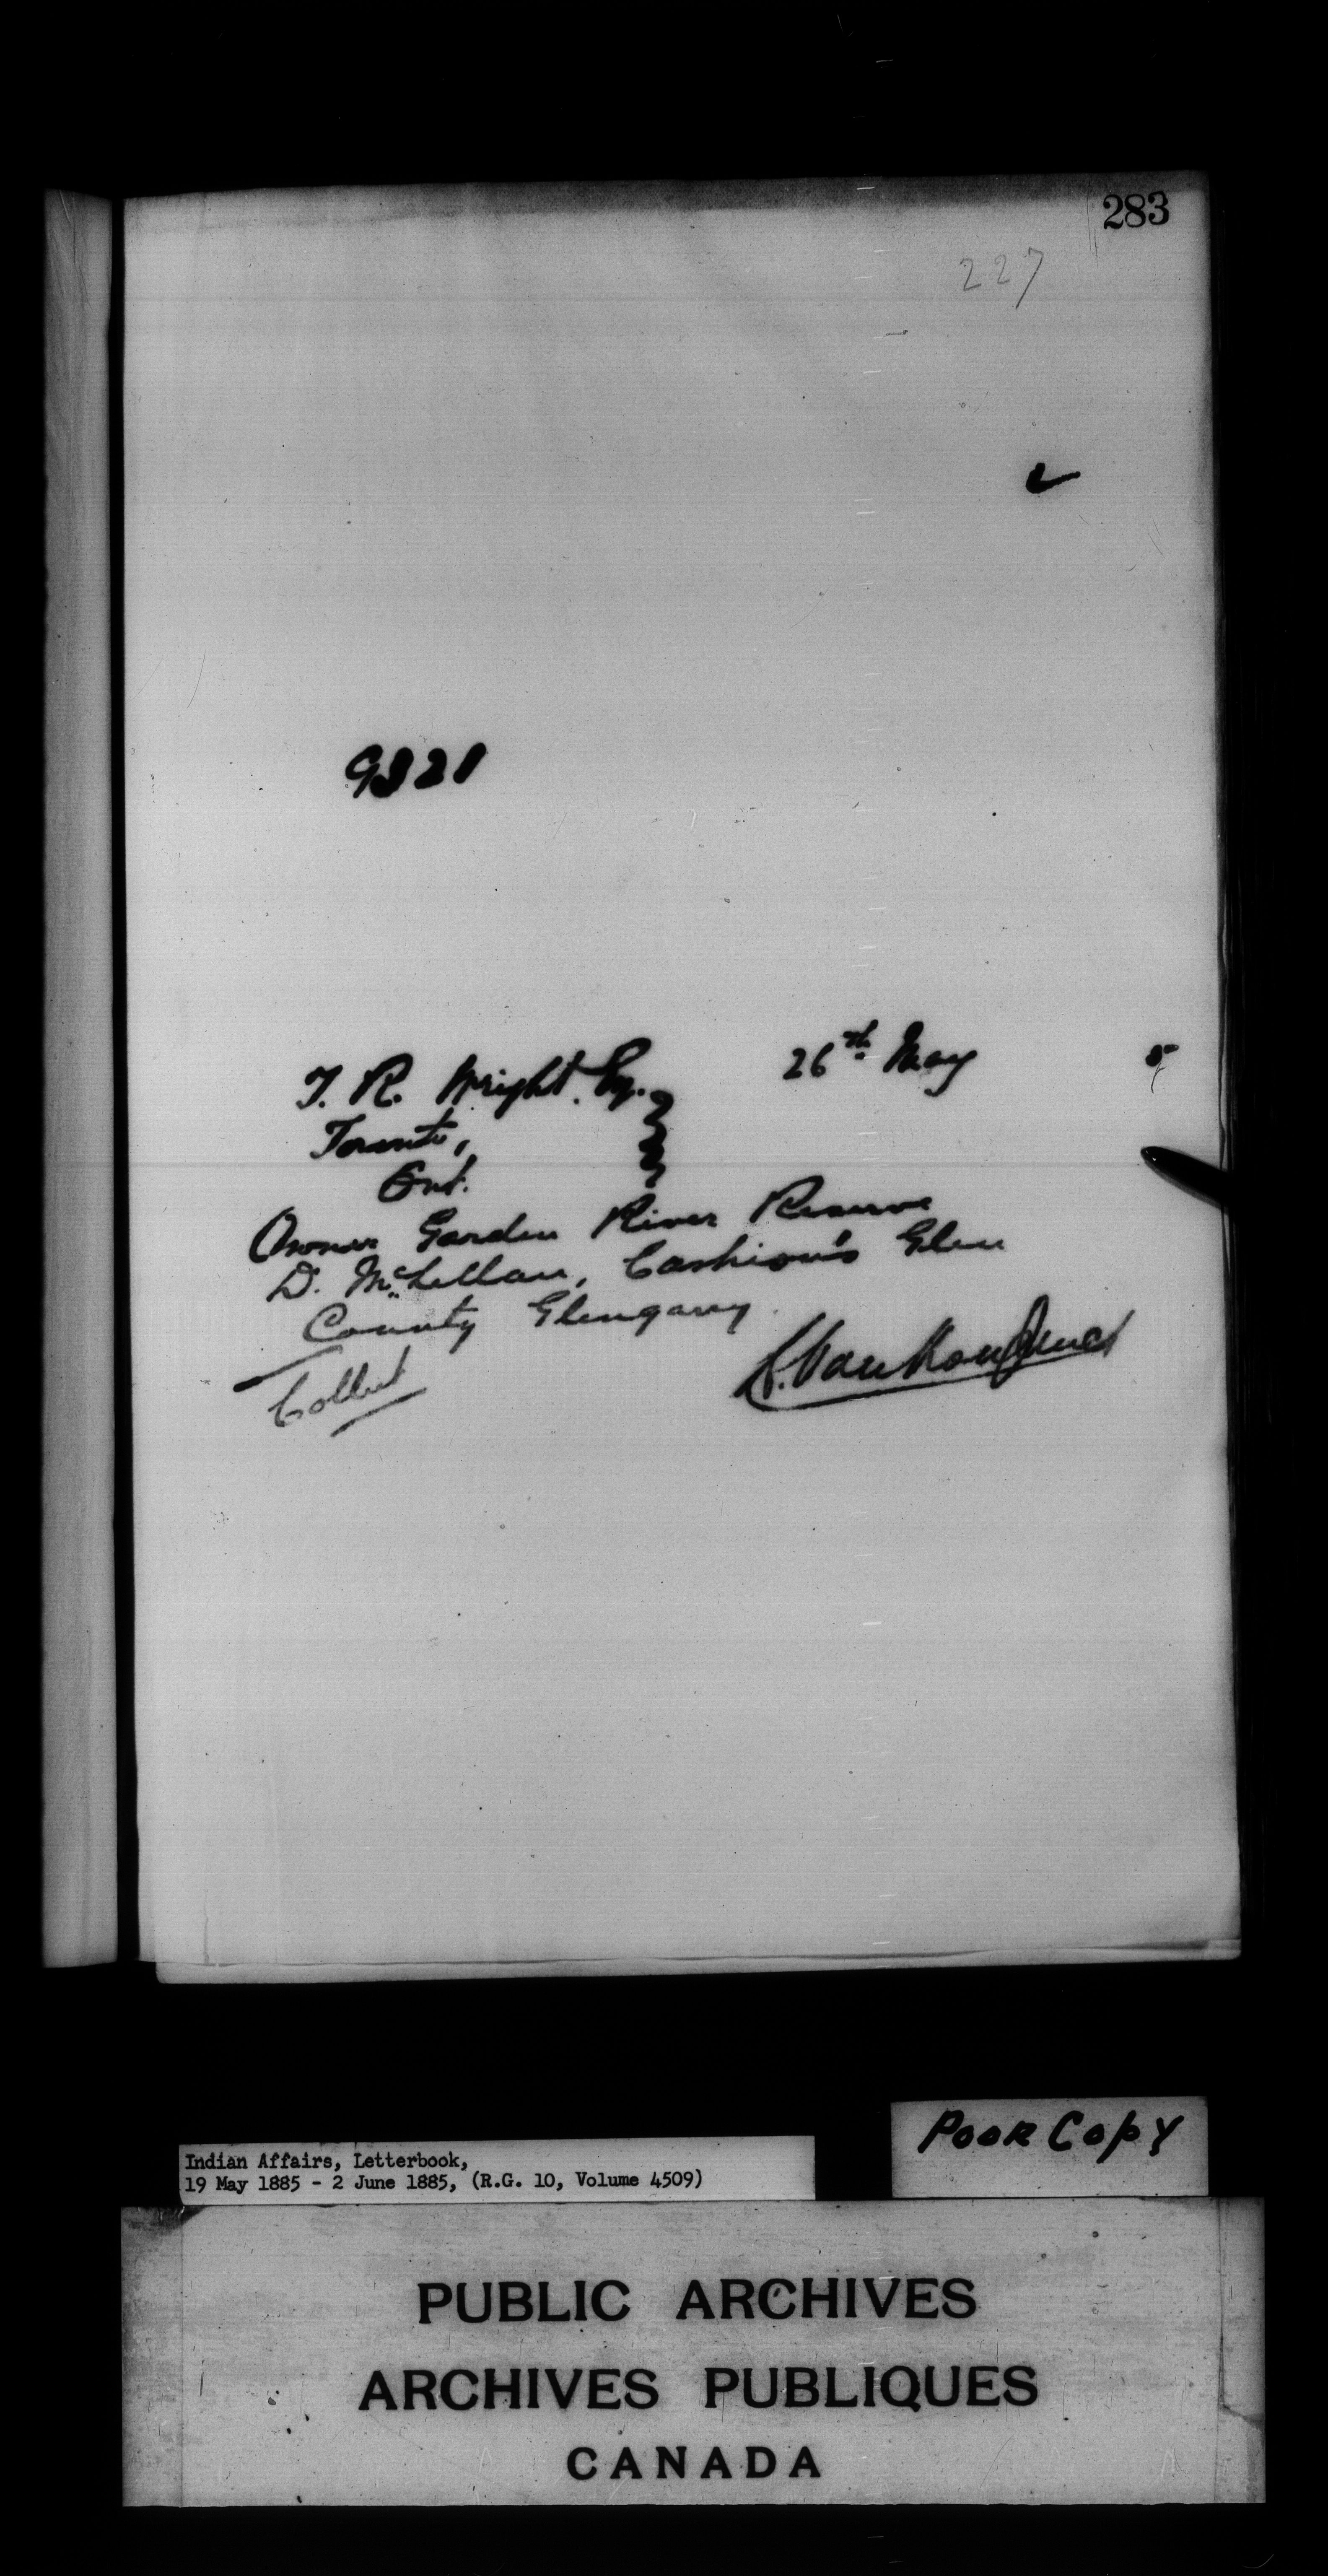 283
227
9321
26th May 5
T. R. Wright. Esq.
Toronto,
Ont.
Owner Garden River Reserve
D. McLellan, Cashion's Glen
County Glengarry.
L. VanKoughnet
Collect
Poor Copy
Indian Affairs, Letterbook,
19 May 1885 - 2 June 1885, (R.G. 10, Volume 4509)
PUBLIC ARCHIVES
ARCHIVES PUBLIQUES
CANADA